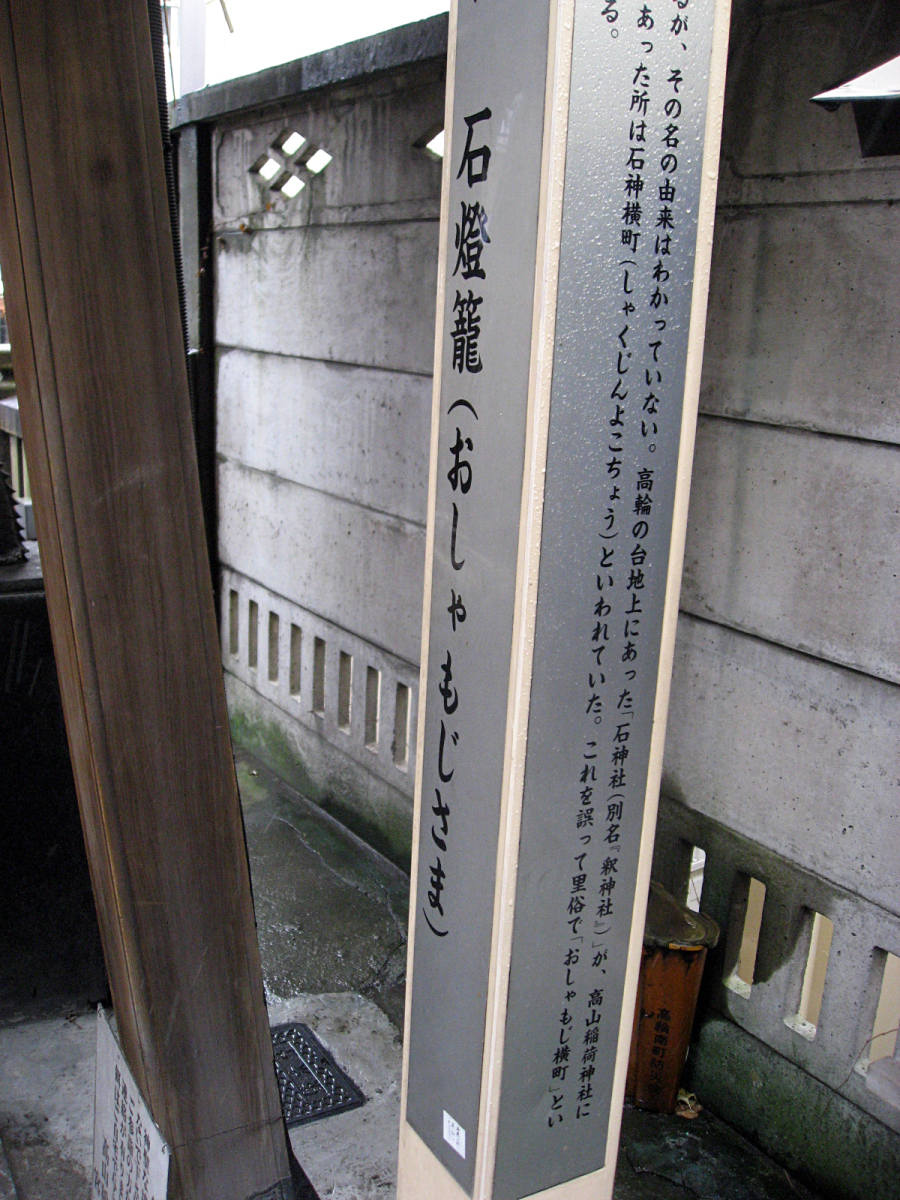 るが、その名の由来はわかっていない。高輪の台地上にあった「石神社(別名『釈神社』)」が、高山稲荷神社に
あった所は石神横町(しゃくじんよこちょう)といわれていた。これを誤って里俗で「おしゃもじ横町」とい
る。
石燈籠(おしゃもじさま)
高輪南町防火水